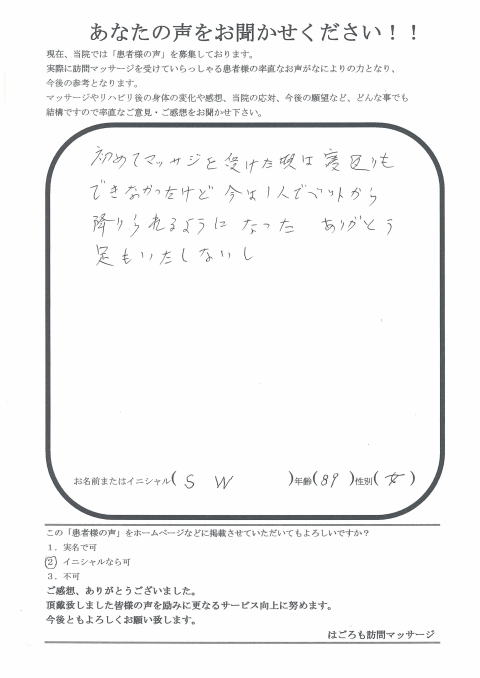 あなたの声をお聞かせください！！
現在、当院では「患者様の声」を募集しております。
実際に訪問マッサージを受けていらっしゃる患者様の率直なお声がなによりの力となり、
今後の参考となります。
マッサージやリハビリ後の身体の変化や感想、当院の応対、今後の願望など、どんな事でも
結構ですので率直なご意見・ご感想をお聞かせ下さい。
初めてマッサジを受けた頃は寝返りも
できなかったけど今は1人でベットから
降りられるようになった ありがとう
足もいたしないし
お名前またはイニシャル(S W)年齢(89)性別(女)
この「患者様の声」をホームページなどに掲載させていただいてもよろしいですか？
１．実名で可
２ イニシャルなら可
３．不可
ご感想、ありがとうございました。
頂戴致しました皆様の声を励みに更なるサービス向上に努めます。
今後ともよろしくお願い致します。
はごろも訪問マッサージ